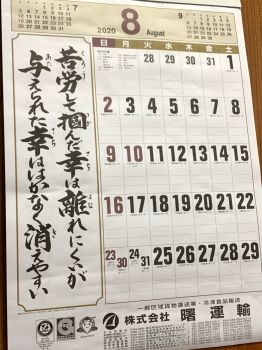 2020 8 August
7
9
日 月 火 水 木 金 土
28 30 31 1
2 3 4 5 6 7 8
9 10 11 12 13 14 15
16 17 18 19 20 21 22
23 30 24 31 25 26 27 28 29
苦労して掴んだ幸は離れにくいが
与えられた幸ははかなく消えやすい
一般区域貨物運送業・冷凍食品輸送
株式会社 曙運輸